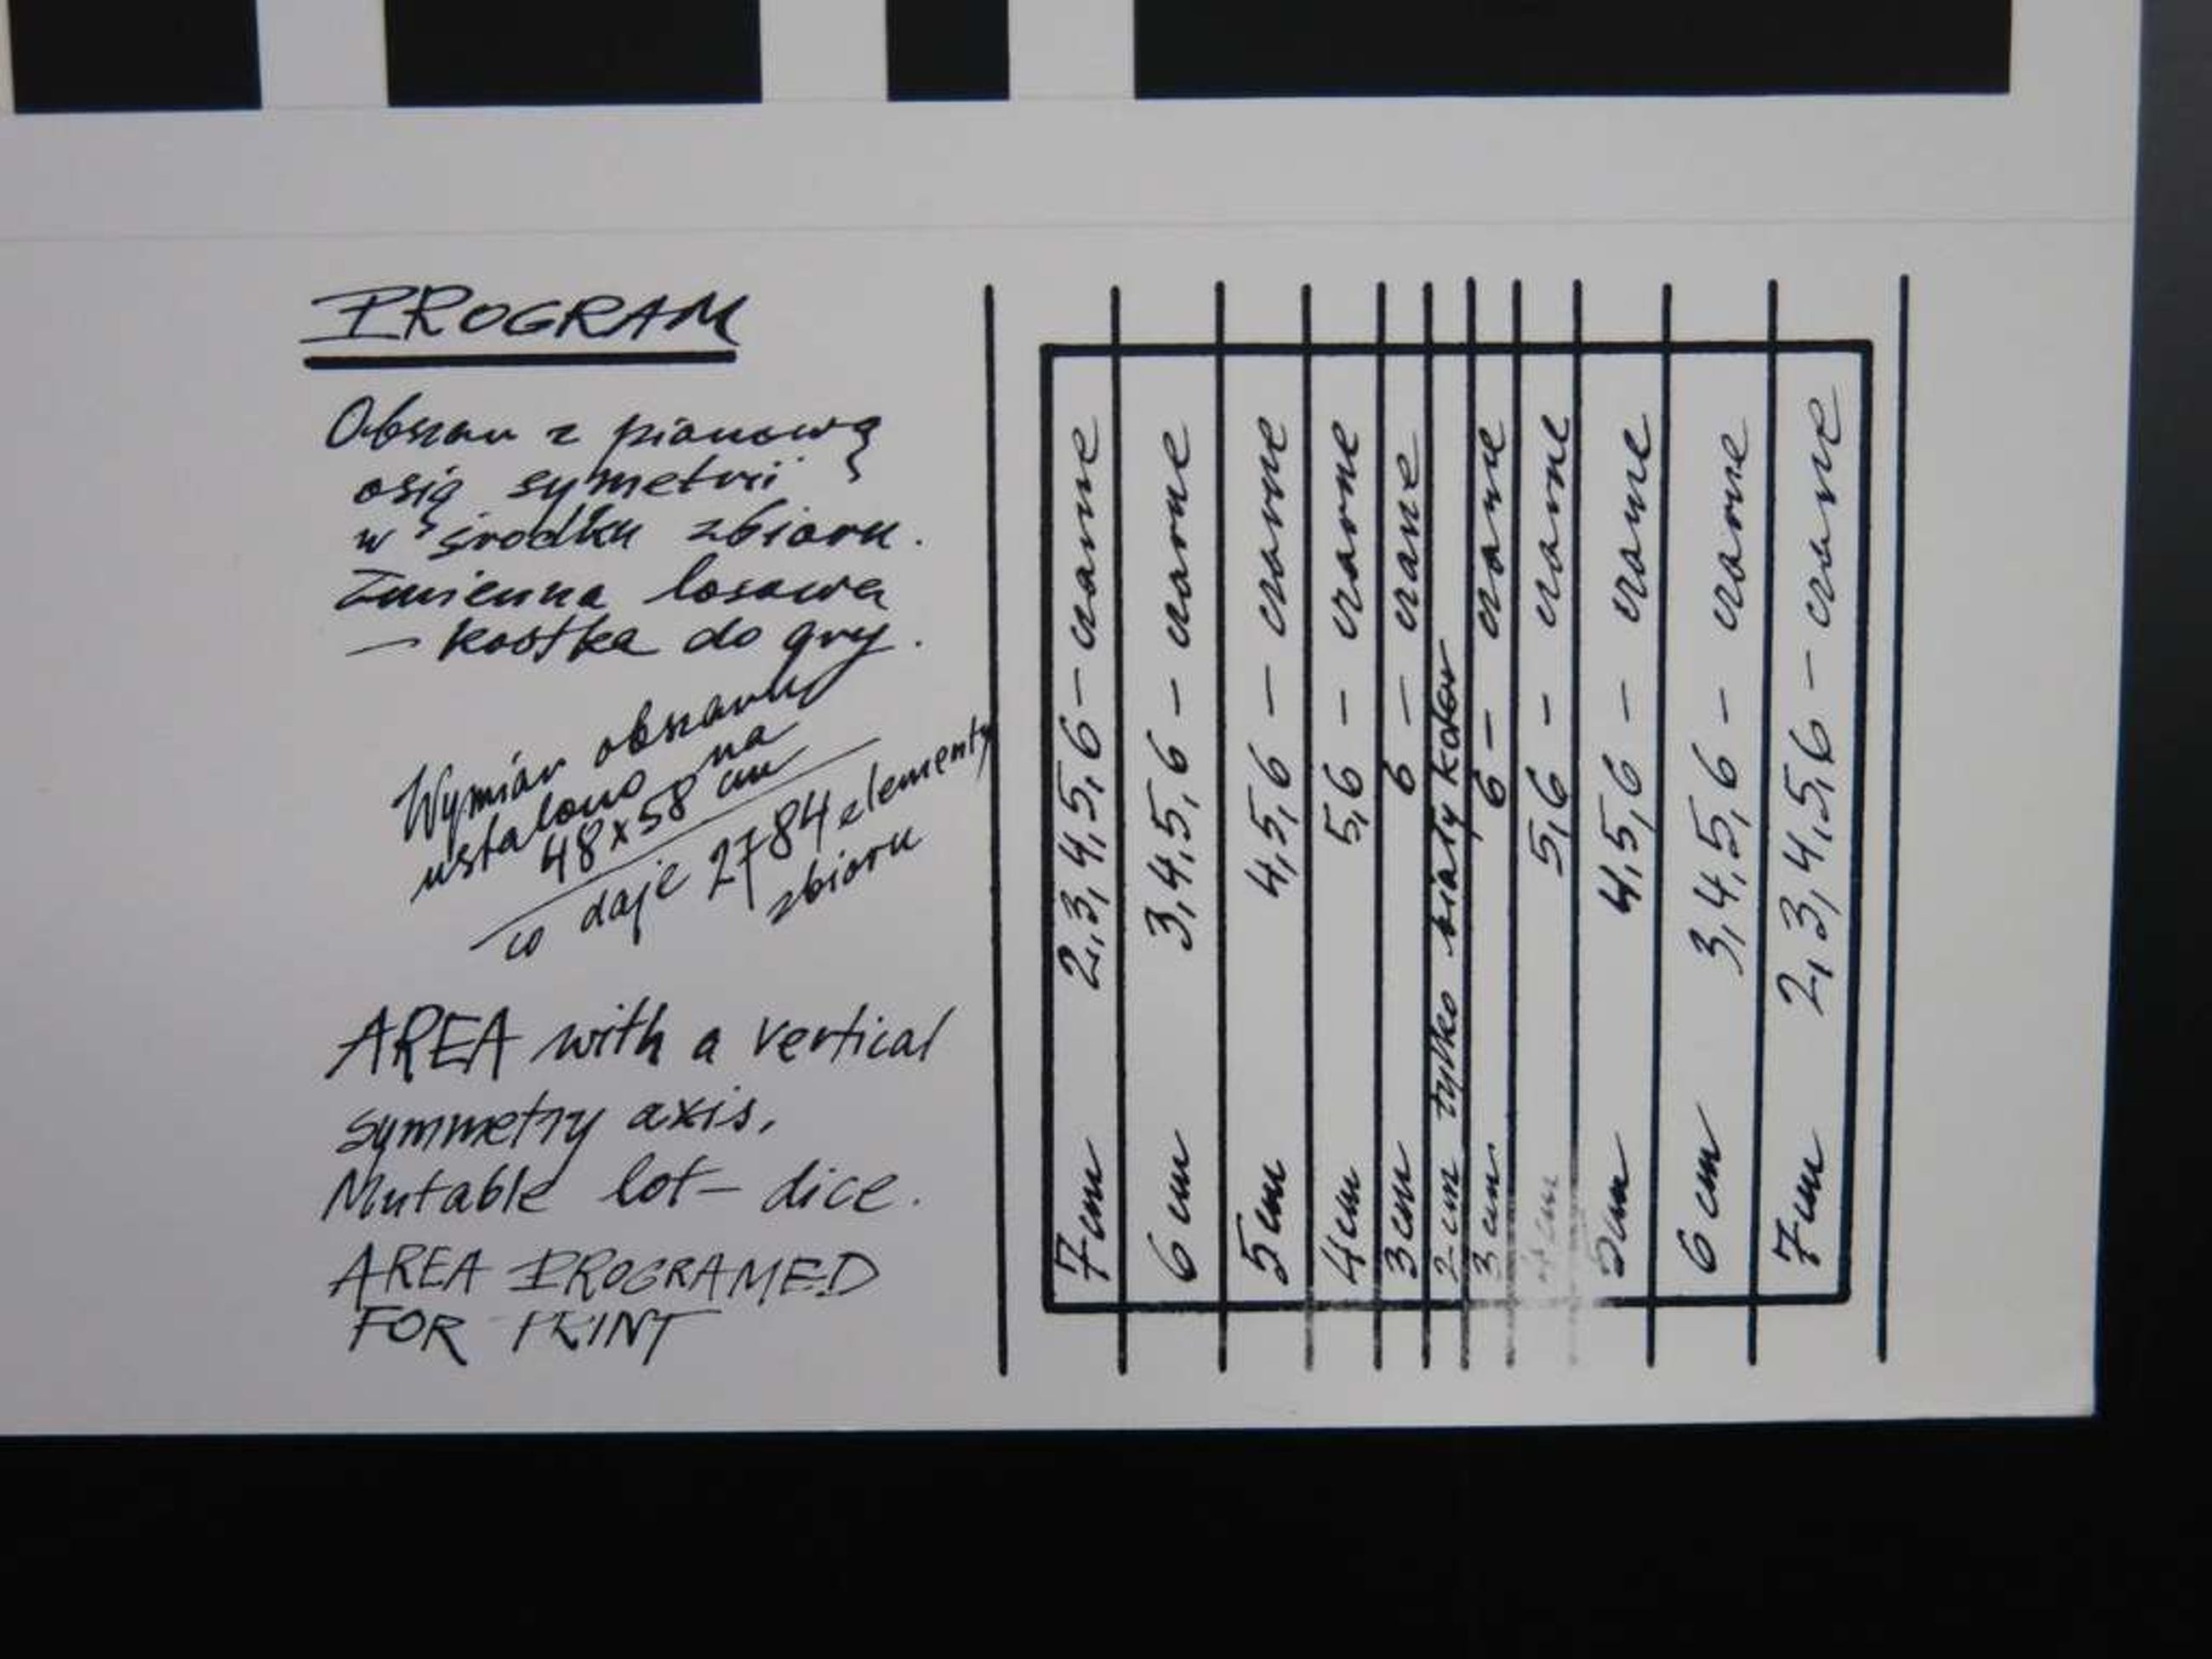 PROGRAM
Obszar z pionową
osią symetrii
w środku zbioru.
Zmienna losowa
— kostka do gry.
Wymiar obszaru
ustalono na
48x58 cm
co daje 2784 elementy
zbioru
AREA with a vertical
symmetry axis.
Mutable lot – dice.
AREA PROGRAMED
FOR PRINT
7cm 2,3,4,5,6 – czarne
6 cm 3,4,5,6 – czarne
5cm 4,5,6 – czarne
4cm 5,6 – czarne
3cm 6 – czarne
2 cm tylko biały kolor
3 cm 6 – czarne
4 cm 5,6 – czarne
5cm 4,5,6 – czarne
6 cm 3,4,5,6 – czarne
7cm 2,3,4,5,6 – czarne